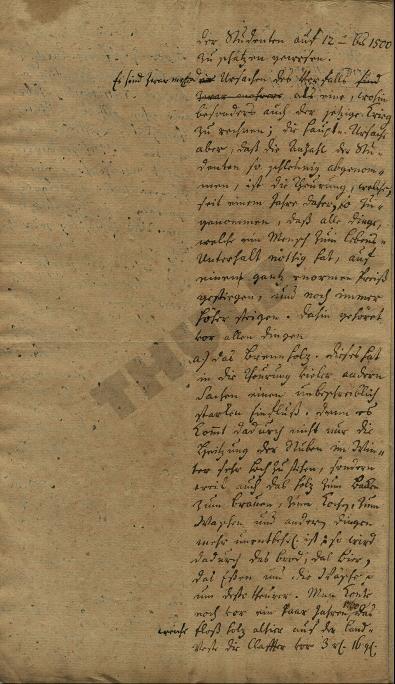 der Studenten auf 12 - bis 1500
zu schätzen gewesen.
Es sind zwar mehr Ursachen des Verfalls sind
zwar mehrere als eine, wohin
besonders auch der jetzige Krieg
zu rechnen; die Haupt-Ursache
aber, daß die Anzahl der Stu-
denten so schleunig abgenom-
men, ist die Theurung, welche
seit einem Jahre daher so zu-
genommen, daß alle dinge,
welche ein Mensch zum Lebens-
Unterhalt nöthig hat, auf
einen gantz enormen Preiß
gestiegen, und noch immer
höher steigen. Dahin gehöret
vor allen dingen
a) das Brennholz. Dieses hat
in die Theurung vieler andern
Sachen einen unbeschreiblich
starken Einfluß, denn es
komt dadurch nicht nur die
Heitzung der Stuben im Win-
ter sehr hoch zu stehen, sondern
weil auch das Holz zum Backen
zum Brauen, zum Kochen, zum
Waschen und andern dingen
mehr unentbehrl. ist, so wird
dadurch das brod, das bier,
das Eßen und die Wäsche
um desto theurer. Man konte
noch vor ein paar Jahren das
weiche Floß holz alhier auf der Land-
veste die Claffter vor 3 rl. 16 gl.